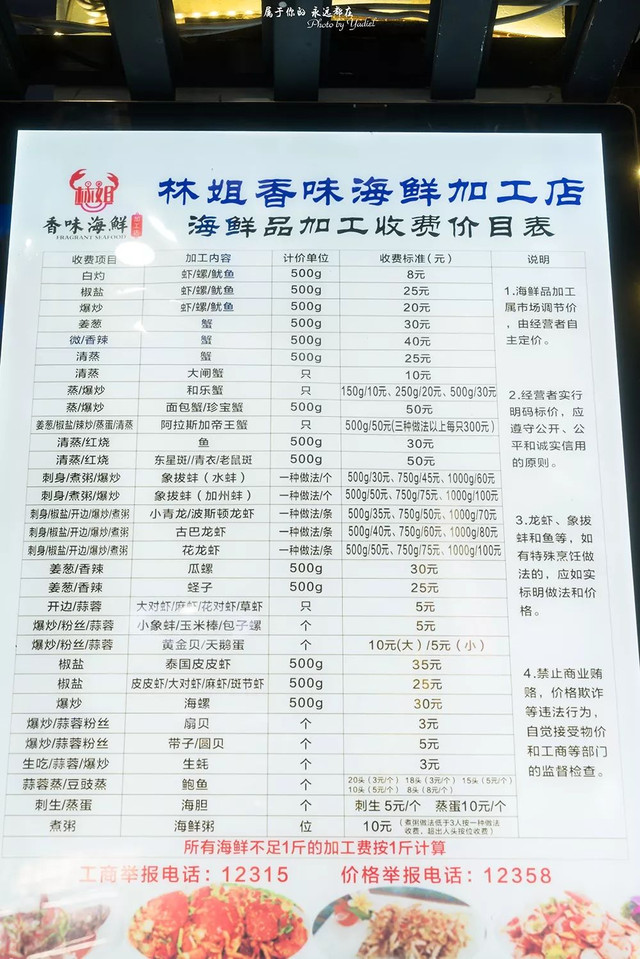 属于你的 永远都在
Photo by Yadiel
林姐
香味海鲜
FRAGRANT SEAFOOD
林姐香味海鲜加工店
海鲜品加工收费价目表
收费项目 加工内容 计价单位 收费标准(元) 说明
白灼 虾/螺/鱿鱼 500g 8元
椒盐 虾/螺/鱿鱼 500g 25元
爆炒 虾/螺/鱿鱼 500g 20元
姜葱 蟹 500g 30元
微/香辣 蟹 500g 40元
清蒸 蟹 500g 25元
清蒸 大闸蟹 只 10元
蒸/爆炒 和乐蟹 只 150g/10元、250g/20元、500g/30元
蒸/爆炒 面包蟹/珍宝蟹 500g 50元
姜葱/椒盐/辣炒/蒸蛋/清蒸 阿拉斯加帝王蟹 只 500g/50元(三种做法以上每只300元)
清蒸/红烧 鱼 500g 30元
清蒸/红烧 东星斑//青衣/老鼠斑 500g 50元
刺身/煮粥/爆炒 象拔蚌（水蚌） 一种做法/个 500g/30元、750g/45元、1000g/60元
刺身/煮粥/爆炒 象拔蚌（加州蚌） 一种做法/个 500g/50元、750g/75元、1000g/100元
刺身/椒盐/开边/爆炒/煮粥 小青龙/波斯顿龙虾 一种做法/条 500g/35元、750g/50元、1000g/70元
刺身/椒盐/开边/爆炒/煮粥 古巴龙虾 一种做法/条 500g/40元、750g/60元、1000g/80元
刺身/椒盐/开边/爆炒/煮粥 花龙虾 一种做法/条 500g/50元、750g/75元、1000g/100元
姜葱/香辣 瓜螺 500g 30元
姜葱/香辣 蛏子 500g 25元
开边/蒜蓉 大对虾/麻虾/花对虾/草虾 只 5元
爆炒/粉丝/蒜蓉 小象蚌/玉米棒/包子螺 个 5元
爆炒/粉丝/蒜蓉 黄金贝/天鹅蛋 个 10元(大)/5元（小）
椒盐 泰国皮皮虾 500g 35元
椒盐 皮皮虾/大对虾/麻虾/斑节虾 500g 25元
爆炒 海螺 500g 30元
爆炒/蒜蓉粉丝 扇贝 个 3元
爆炒/蒜蓉粉丝 带子/圆贝 个 5元
生吃/蒜蓉/爆炒 生蚝 个 3元
蒜蓉蒸/豆豉蒸 鲍鱼 个 20头（3元/个） 18头（3元/个） 15头（5元/个）
10头（5元/个） 8头（8元/个）
刺生/蒸蛋 海胆 个 刺生 5元/个 蒸蛋10元/个
煮粥 海鲜粥 位 10元（煮粥做法低于3人按一种做法
收费，超出人头按位收费）
1.海鲜品加工
属市场调节价
，由经营者自
主定价。
2.经营者实行
明码标价，应
遵守公开、公
平和诚实信用
的原则。
3.龙虾、象拔
蚌和鱼等，如
有特殊烹饪做
法的，应如实
标明做法和价
格。
4.禁止商业贿
赂，价格欺诈
等违法行为，
自觉接受物价
和工商等部门
的监督检查。
所有海鲜不足1斤的加工费按1斤计算
工商举报电话：12315 价格举报电话：12358